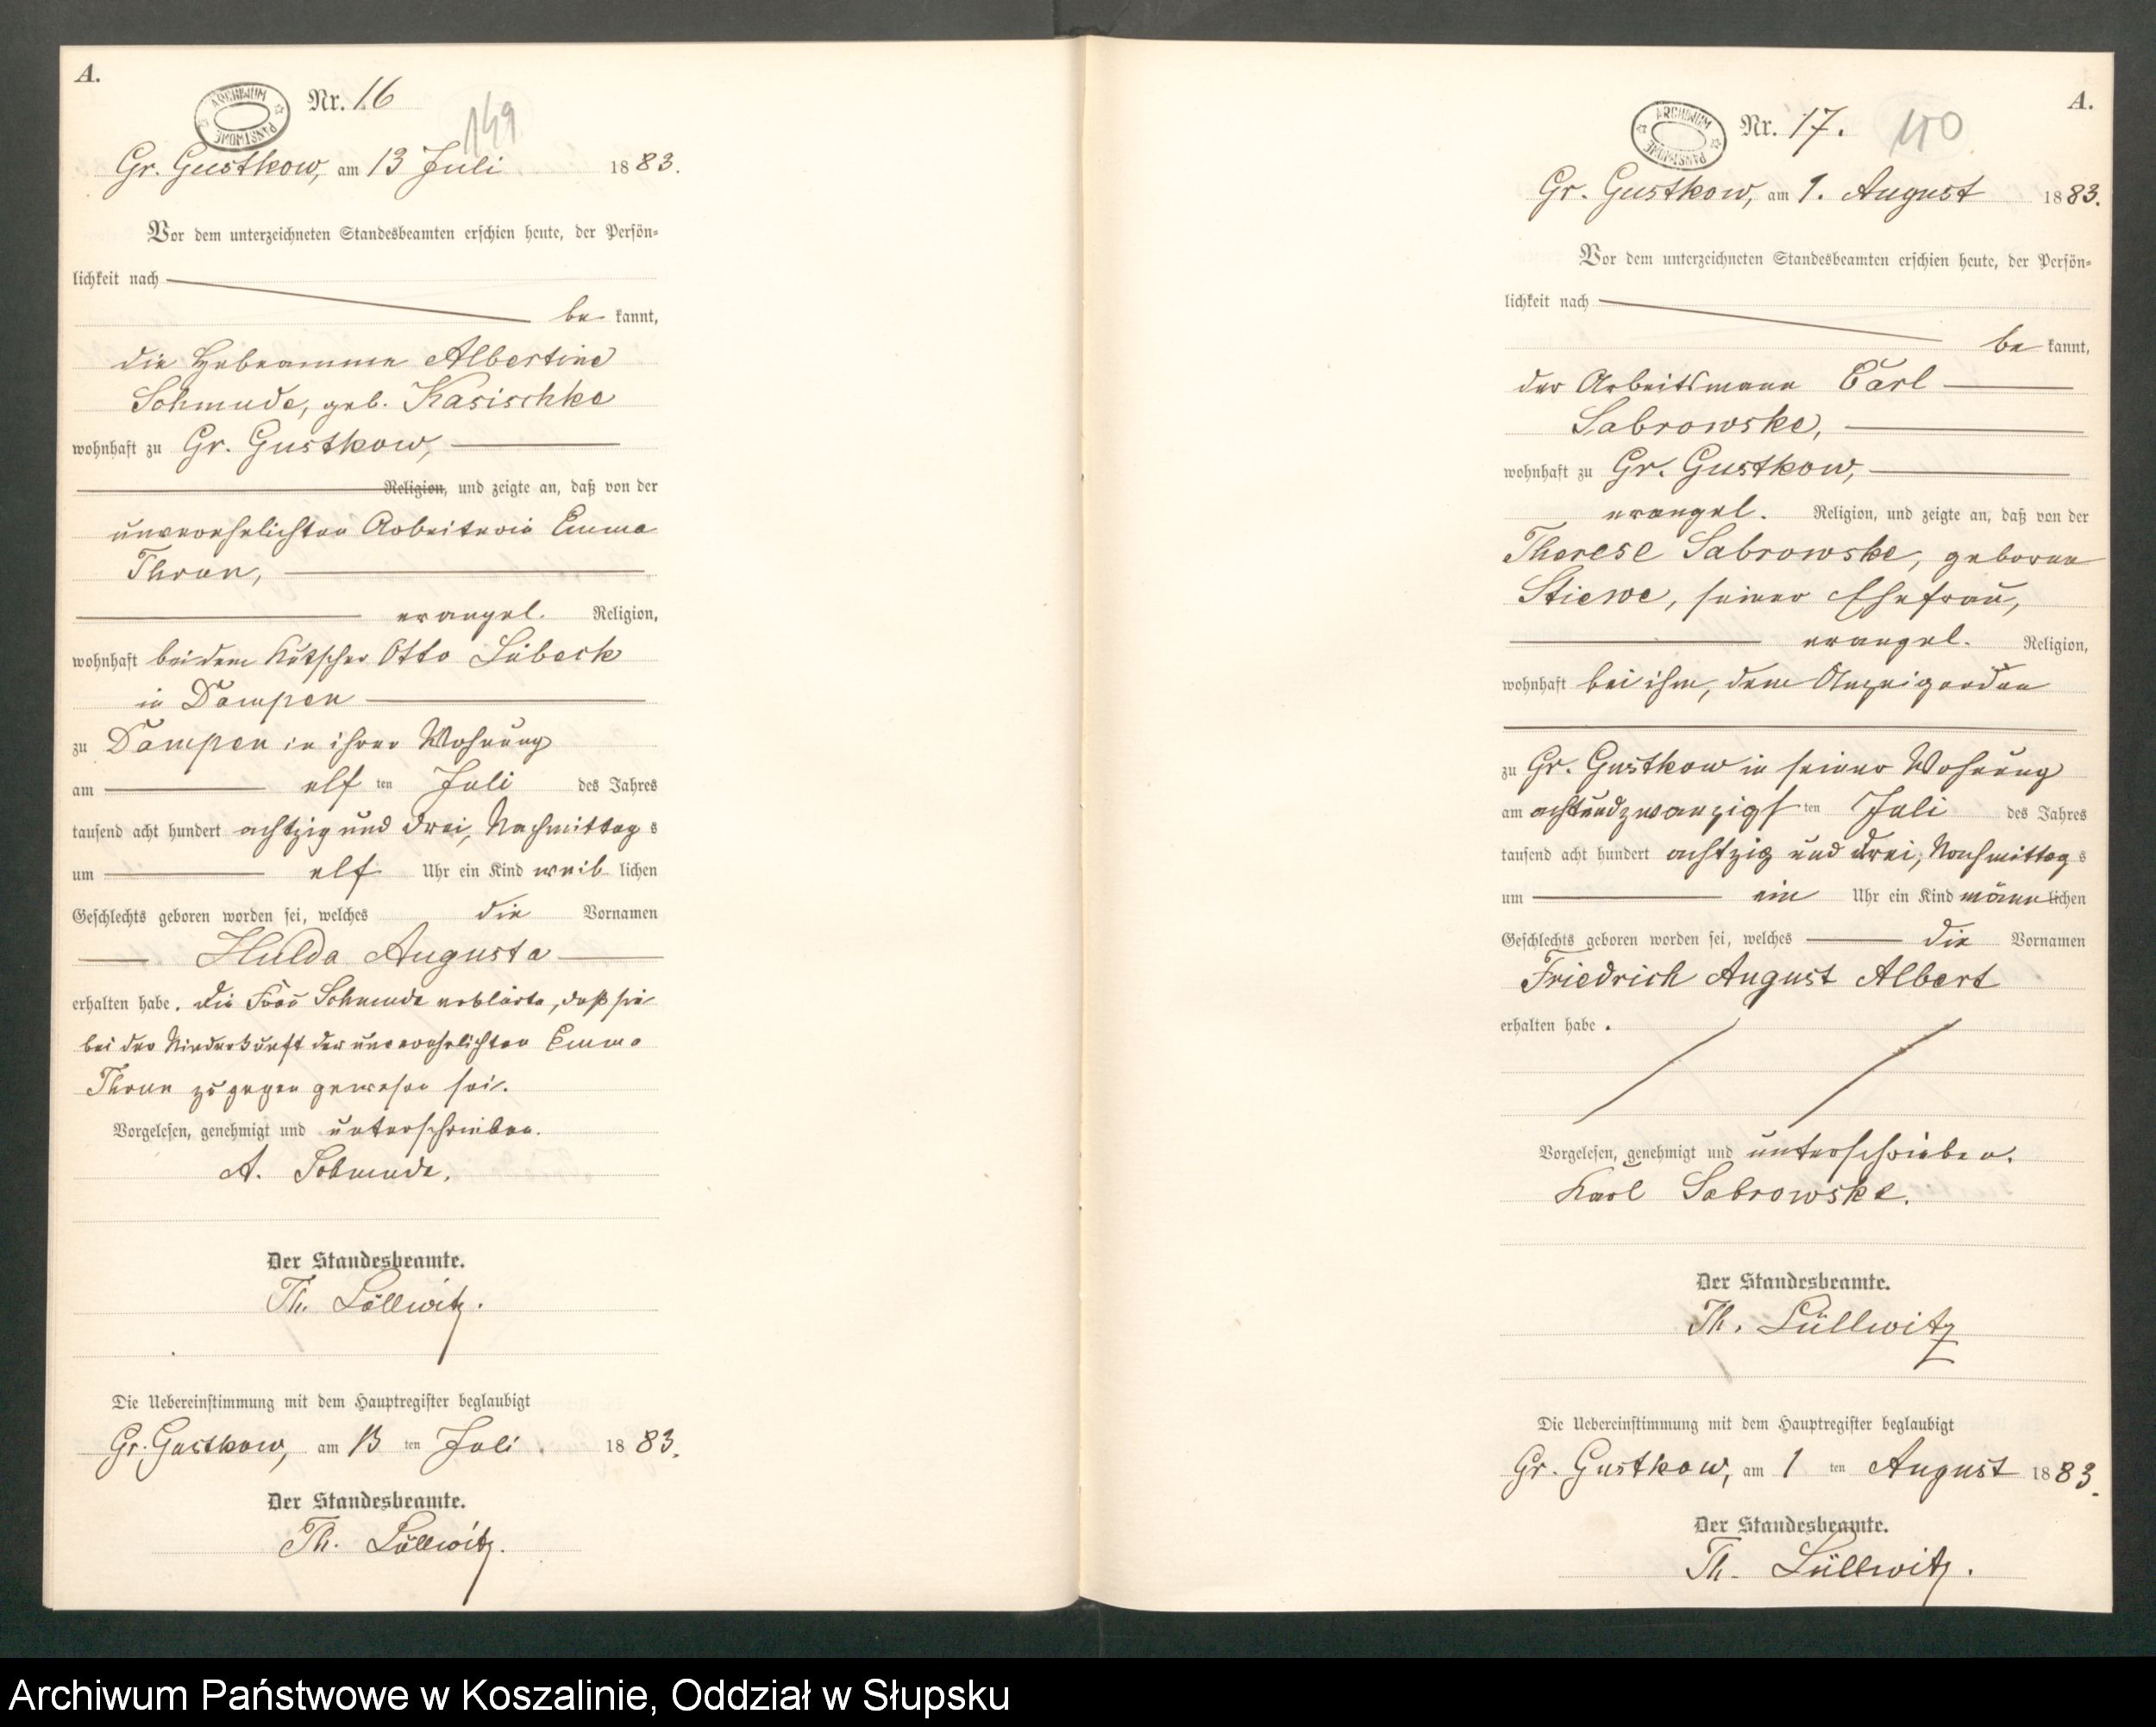 A.
ARCHIWUM PAŃSTWOWE
Nr. 16
149
Gr. Gustkow, am 13 Juli 1883.
Vor dem unterzeichneten Standesbeamten erschien heute, der Persön-
lichkeit nach
be kannt,
die Hebeamme Albertine
Schmude, geb. Kasischke
wohnhaft zu Gr. Gustkow,
Religion, und zeigte an, daß von der
unverehelichten Arbeiterin Emma
Thrun,
evangel. Religion,
wohnhaft bei dem Kutscher Otto Lübeck
in Dampen
zu Dampen in ihrer Wohnung
am elf ten Juli des Jahres
tausend acht hundert achtzig und drei, Nachmittag s
um elf Uhr ein Kind weib lichen
Geschlechts geboren worden sei, welches die Vornamen
Hulda Augusta
erhalten habe. Die Frau Schmude erklärte, daß sie
bei der Niederkunft der unverehelichten Emma
Thrun zugegen gewesen sei.
Vorgelesen, genehmigt und unterschrieben.
A. Schmude.
Der Standesbeamte.
Th. Lüllwitz.
Die Uebereinstimmung mit dem Hauptregister beglaubigt
Gr. Gustkow, am 13 ten Juli. 1883.
Der Standesbeamte.
Th. Lüllwitz.
A.
ARCHIWUM PAŃSTWOWE
Nr. 17.
Gr. Gustkow, am 1. August 1883.
Vor dem unterzeichneten Standesbeamten erschien heute, der Persön-
lichkeit nach
be kannt,
der Arbeitsmann Carl
Sabrowske,
wohnhaft zu Gr. Gustkow,
evangel. Religion, und zeigte an, daß von der
Therese Sabrowske, geborne
Stiewe, seiner Ehefrau,
evangel. Religion,
wohnhaft bei ihm, dem Anzeigenden
zu Gr. Gustkow in seiner Wohnung
am achtundzwanzigs ten Juli des Jahres
tausend acht hundert achtzig und drei, Nachmittag s
um ein Uhr ein Kind männ lichen
Geschlechts geboren worden sei, welches die Vornamen
Friedrich August Albert
erhalten habe.
Vorgelesen, genehmigt und unterschrieben.
Karl Sabrowske.
Der Standesbeamte.
Th. Lüllwitz
Die Uebereinstimmung mit dem Hauptregister beglaubigt
Gr. Gustkow, am 1 ten August 1883.
Der Standesbeamte.
Th. Lüllwitz.
Archiwum Państwowe w Koszalinie, Oddział w Słupsku